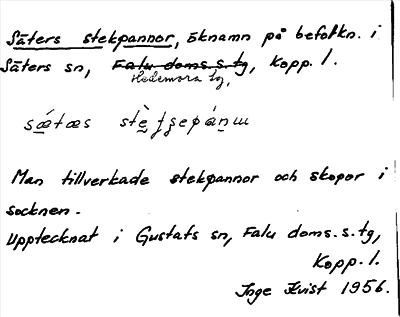 Säters stekpannor, öknamn på befolkn. i
Säters sn, Falu doms.s.tg, Kopp. l.
Hedemora tg,
Man tillverkade stekpannor och skopor i
socknen.
Upptecknat i Gustafs sn, Falu doms.s.tg,
Kopp. l.
Inge Kvist 1956.